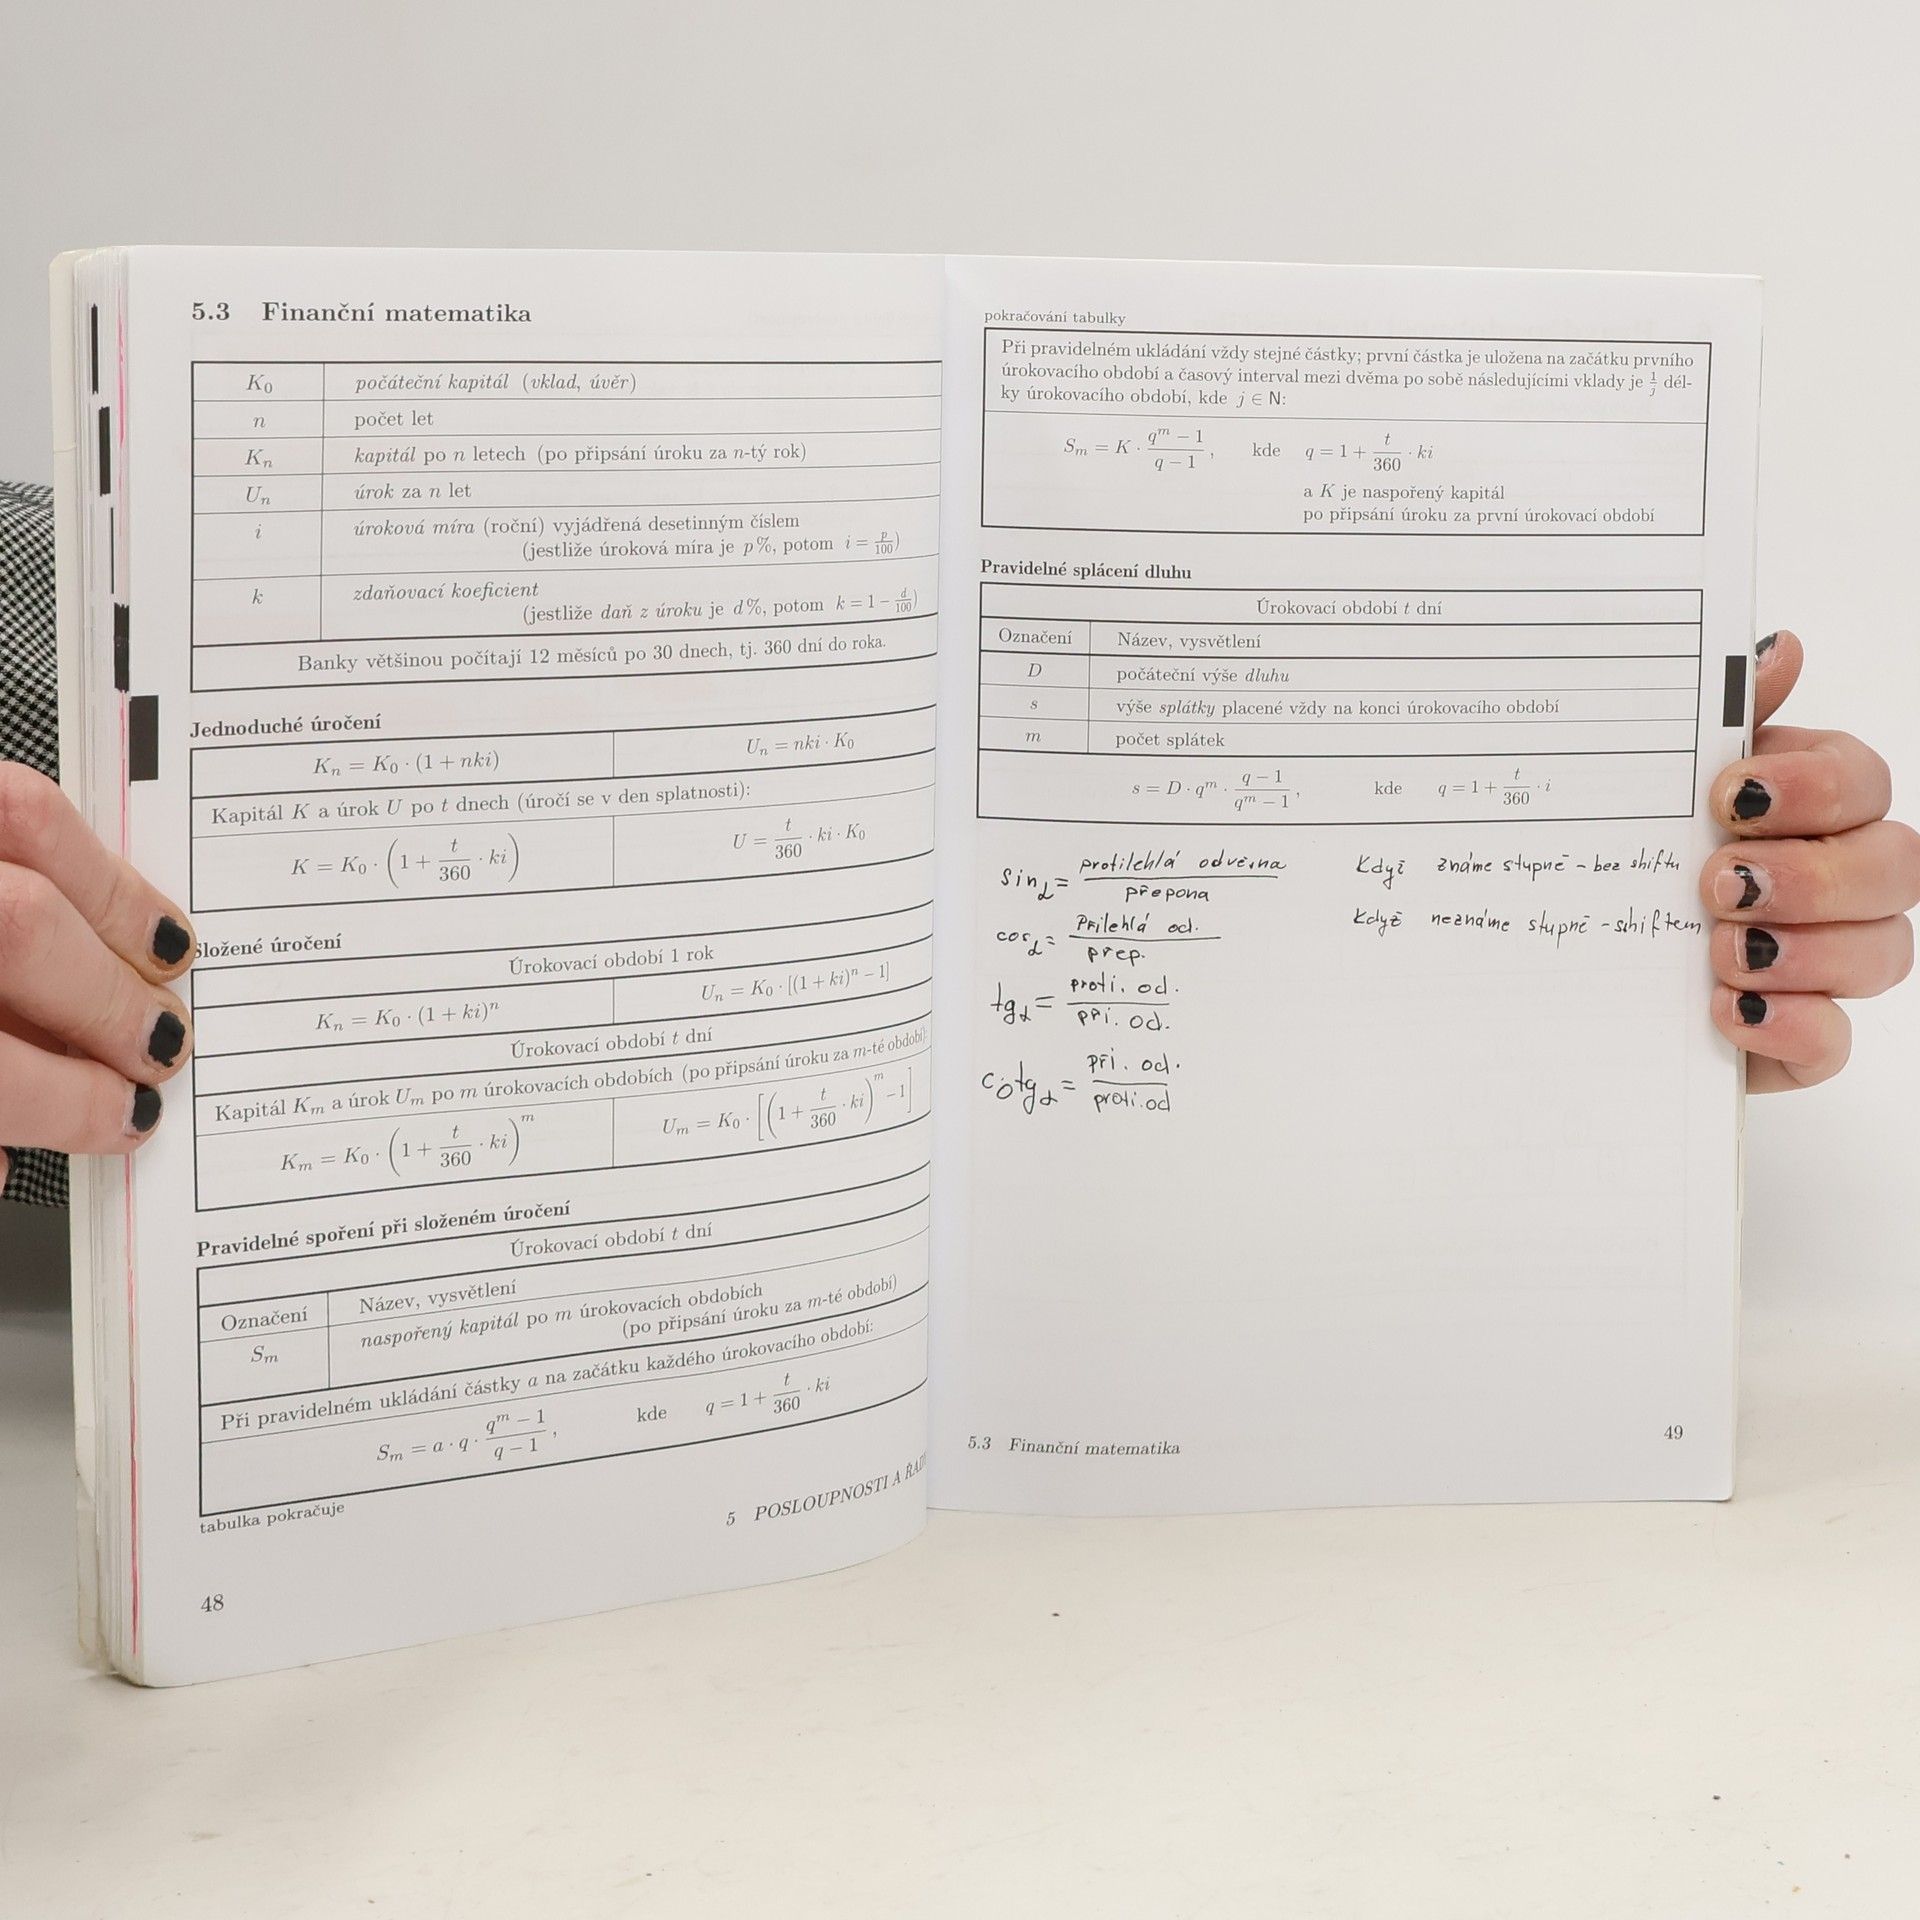 5.3 Finanční matematika
K₀ počáteční kapitál (vklad, úvěr)
n počet let
Kₙ kapitál po n letech (po připsání úroku za n-tý rok)
Uₙ úrok za n let
i úroková míra (roční) vyjádřená desetinným číslem
(jestliže úroková míra je p%, potom i = p/100)
k zdaňovací koeficient
(jestliže daň z úroku je d%, potom k = 1 − d/100)
Banky většinou počítají 12 měsíců po 30 dnech, tj. 360 dní do roka.
Jednoduché úročení
Kₙ = K₀ · (1 + nki) Uₙ = nki · K₀
Kapitál K a úrok U po t dnech (úročí se v den splatnosti):
K = K₀ · (1 + t/360 · ki) U = t/360 · ki · K₀
Složené úročení
Úrokovací období 1 rok
Kₙ = K₀ · (1 + ki)ⁿ Uₙ = K₀ · [(1 + ki)ⁿ − 1]
Úrokovací období t dní
Kapitál Kₘ a úrok Uₘ po m úrokovacích obdobích (po připsání úroku za m-té období):
Kₘ = K₀ · (1 + t/360 · ki)ᵐ Uₘ = K₀ · [(1 + t/360 · ki)ᵐ − 1]
Pravidelné spoření při složeném úročení
Úrokovací období t dní
Označení Název, vysvětlení
Sₘ naspořený kapitál po m úrokovacích obdobích
(po připsání úroku za m-té období)
Při pravidelném ukládání částky a na začátku každého úrokovacího období:
Sₘ = a · q · (qᵐ − 1)/(q − 1), kde q = 1 + t/360 · ki
tabulka pokračuje
5 POSLOUPNOSTI A ŘAD
48
pokračování tabulky
Při pravidelném ukládání vždy stejné částky; první částka je uložena na začátku prvního
úrokovacího období a časový interval mezi dvěma po sobě následujícími vklady je 1/j dél-
ky úrokovacího období, kde j ∈ N:
Sₘ = K · (qᵐ − 1)/(q − 1), kde q = 1 + t/360 · ki
a K je naspořený kapitál
po připsání úroku za první úrokovací období
Pravidelné splácení dluhu
Úrokovací období t dní
Označení Název, vysvětlení
D počáteční výše dluhu
s výše splátky placené vždy na konci úrokovacího období
m počet splátek
s = D · qᵐ · (q − 1)/(qᵐ − 1), kde q = 1 + t/360 · i
sin α = protilehlá odvěsna / přepona
Když známe stupně – bez shiftu
cos α = Přilehlá od. / přep.
Když neznáme stupně – shiftem
tg α = proti. od. / při. od.
cotg α = při. od. / proti. od
5.3 Finanční matematika
49